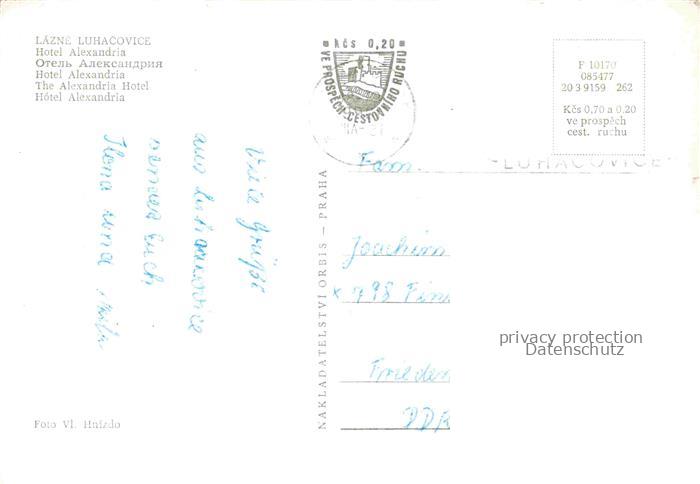 LÁZNĚ LUHAČOVICE
Hotel Alexandria
Отель Александрия
Hotel Alexandria
The Alexandria Hotel
Hôtel Alexandria
Kčs 0,20
VE PROSPĚCH CESTOVNÍHO RUCHU
F 10170
085477
20 3 9159 262
Kčs 0,70 a 0.20
ve prospěch
cest. ruchu
LUHAČOVICE
Viele Grüße
aus Luhacovice
Euch
Ilona und
NAKLADATELSTVÍ ORBIS – PRAHA
Fam.
Joachim
x 795 Fin
Frieden
DDR
privacy protection
Datenschutz
Foto Vl. Hnízdo